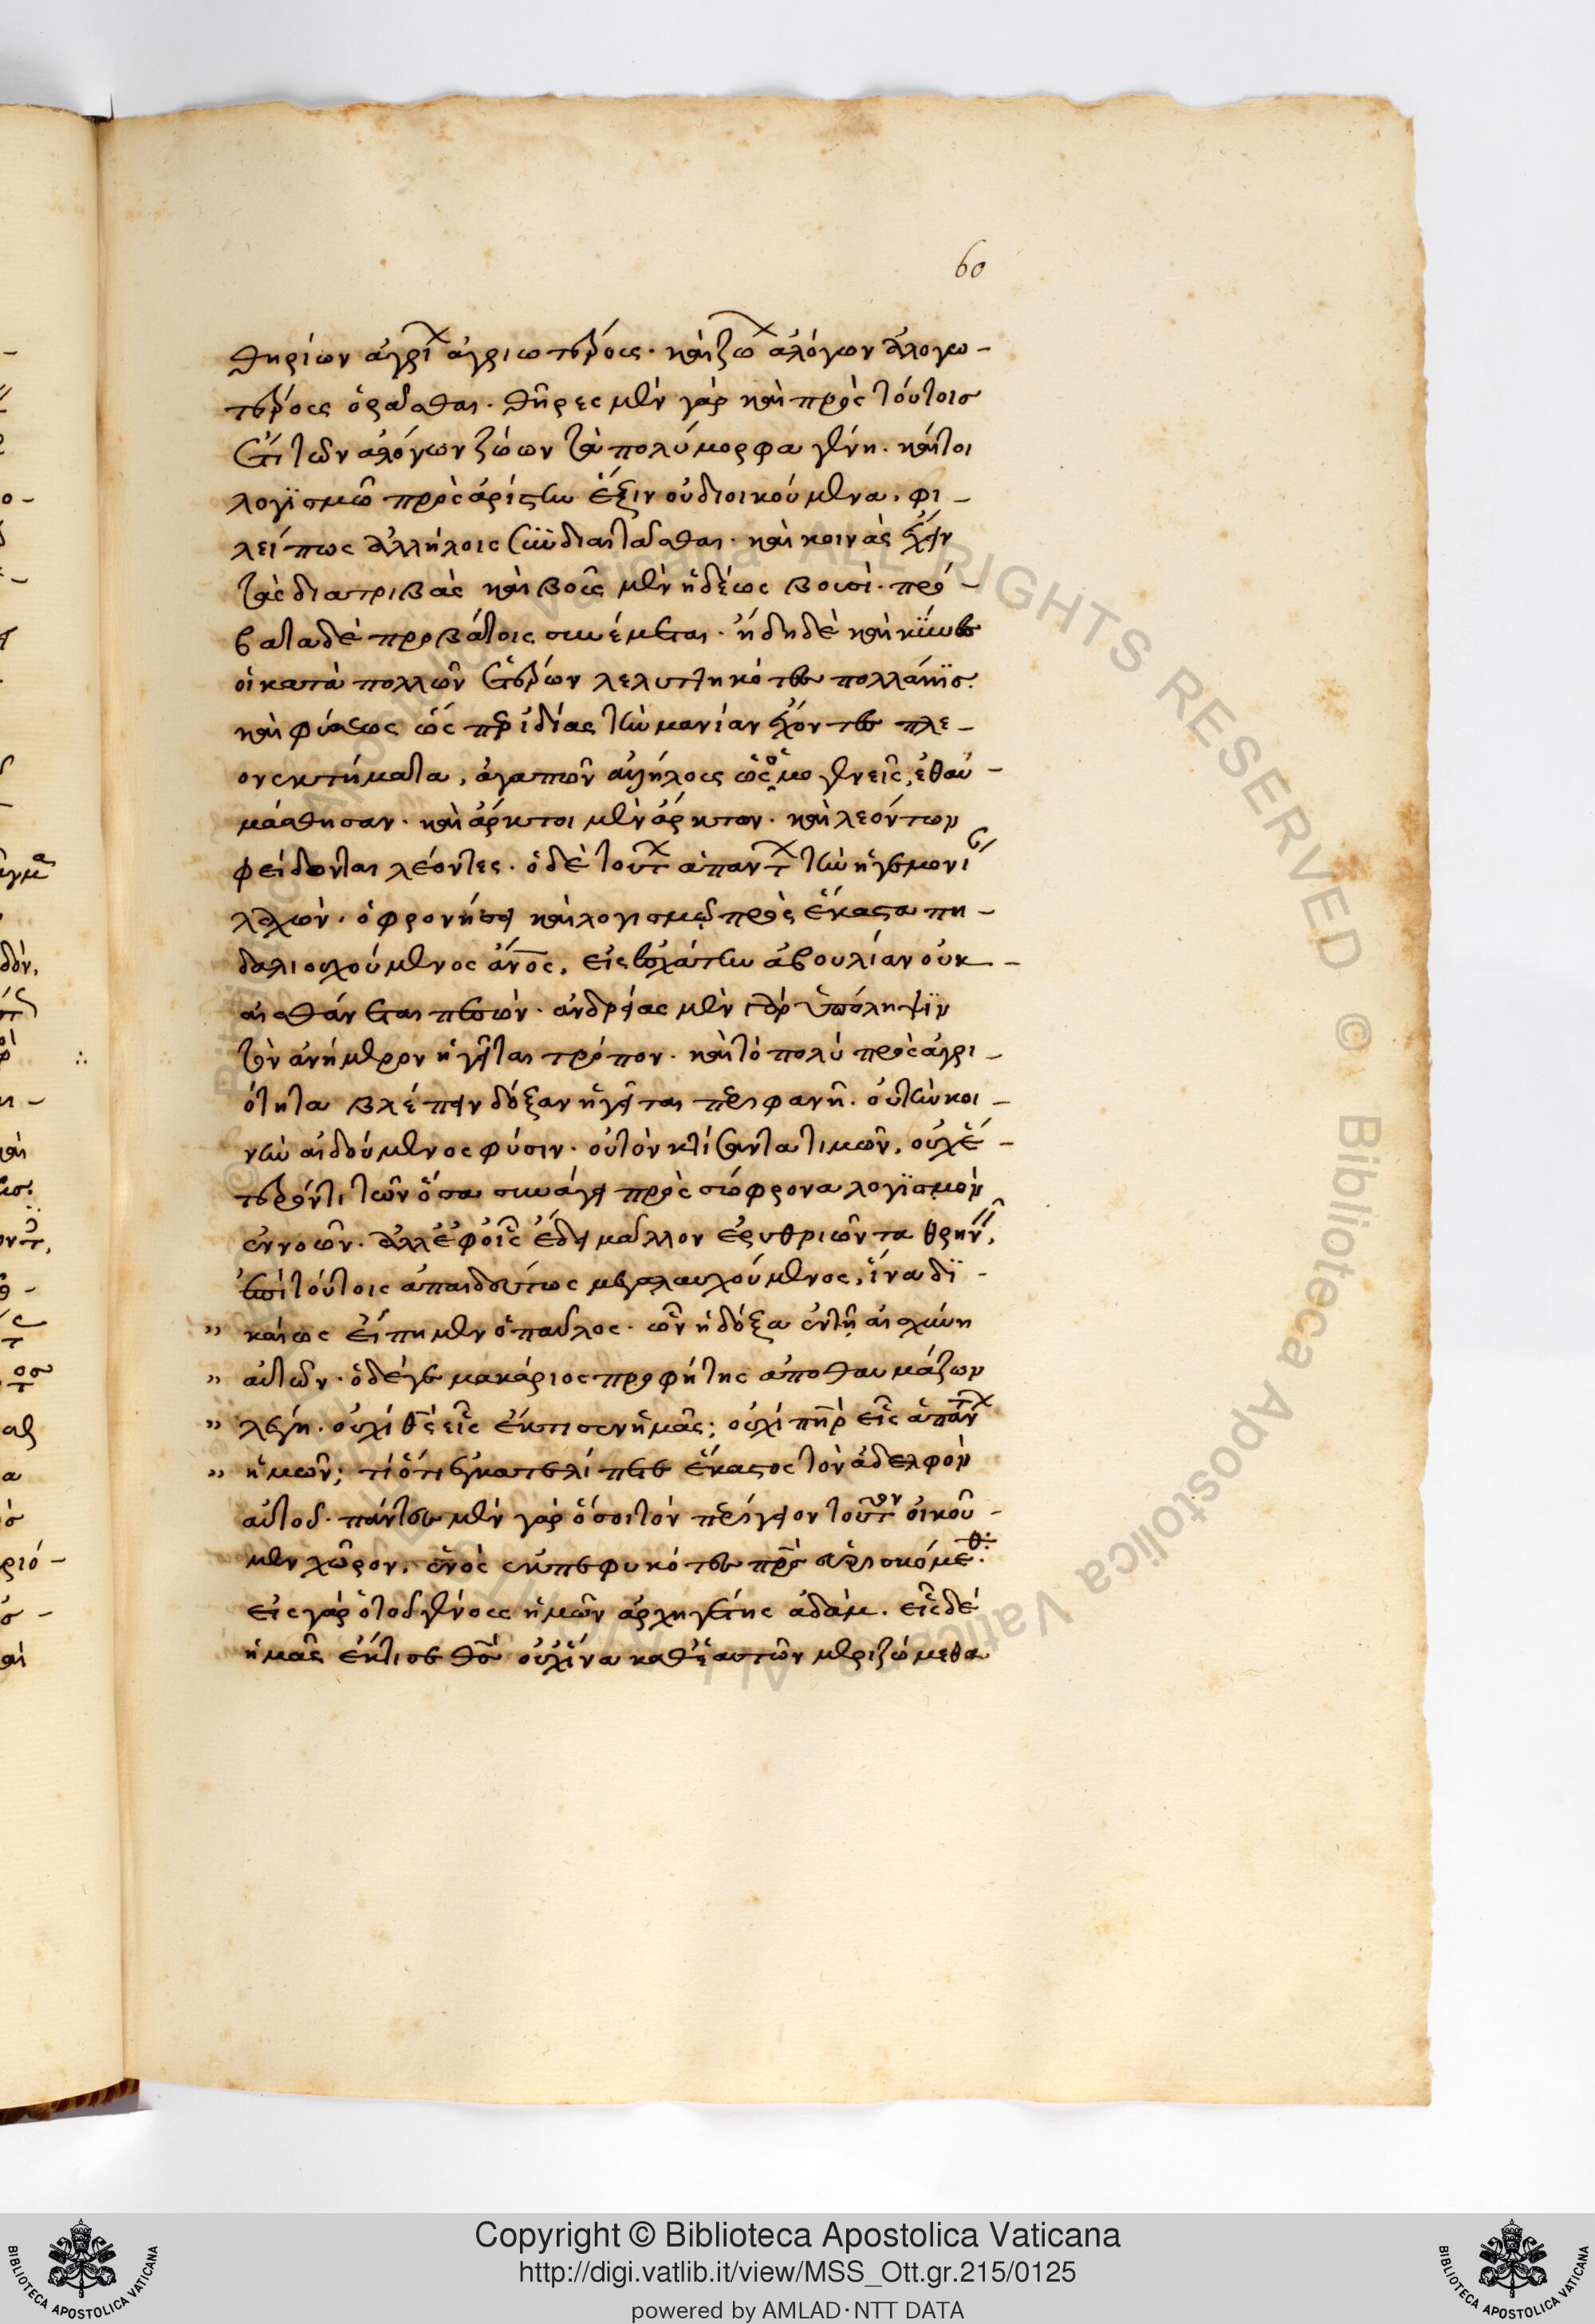 60
θηρίων ἀγρίων ἀγριωτέρους. καὶ ζώων ἀλόγων ἀλογω-
τέρους ὁρᾶσθαι. θῆρες μὲν γὰρ καὶ πρὸς τούτοις
ἔτι τῶν ἀλόγων ζώων τὰ πολύμορφα γένη. καίτοι
λογϊσμῶ πρὸς ἀρίστην ἕξιν οὐ διοικούμενα, φι-
λεί πως ἀλλήλοις συνδιαιτᾶσθαι. καὶ κοινὰς ἔχειν
τὰς διατριβὰς καὶ βοῦς μὲν ἡδέως βουσὶ. πρό-
βατα δὲ προβάτοις συνέμεται. ἤδη δὲ καὶ κύνες
οἱ κατὰ πολλῶν ἑτέρων λελυττηκότες πολλάκϊς.
καὶ φύσεως ὡς περ ἰδίας τὴν μανίαν ἔχοντες πλε-
ονεκτήματα, ἀγαπῶν ἀλλήλους ὡς ὁμογενεῖς, ἐθαυ-
μάσθησαν. καὶ ἄρκτοι μὲν ἄρκτων. καὶ λεόντων
φείδονται λέοντες. ὁ δὲ τούτων ἁπάντων τὴν ἡγεμονί
λαχὼν. ὁ φρονήσει καὶ λογισμῷ πρὸς ἕκαστα πη-
δαλιουχούμενος ἄνος, εἰς ἐσχάτην ἀβουλίαν οὐκ-
αἰσθάνεται πεσών. ἀνδρείας μὲν γὰρ ὑπόληψϊν
τὸν ἀνήμερον ἡγεῖται τρόπον. καὶ τὸ πολὺ πρὸς ἀγρι-
ότητα βλέπειν δόξαν ἡγεῖται περιφανῆ. οὐ τὴν κοι-
νὴν αἰδούμενος φύσιν. οὐ τὸν κτίσαντα τιμῶν, οὐχ ἕ-
τερόν τι τῶν ὅσα συνάγει πρὸς σώφρονα λογϊσμὸν
ἐννοῶν. ἀλλ' ἐφ' οἷς ἔδει μᾶλλον ἐρυθριῶντα θρηνεῖν,
ἐπὶ τούτοις ἀπαιδεύτως μεγαλαυχούμενος, ἵνα δϊ-
" καίως εἴπη μὲν ὁ παῦλος. ὧν ἡ δόξα ἐν τῇ αἰσχύνη
" αὐτῶν. ὁ δέ γε μακάριος προφήτης ἀποθαυμάζων
" λέγη. οὐχὶ θς εἷς ἔκτισεν ἡμᾶς; οὐχὶ πηρ εἷς ἁπάντων
" ἡμῶν; τί ὅτι ἐγκατελίπετε ἕκαστος τὸν ἀδελφὸν
αὐτοῦ. πάντες μὲν γὰρ ὅσοι τὸν περίγειον τοῦτον οἰκοῦ-
μεν χῶρον, ἑνὸς ἐκπεφυκότες πρς εὑρισκόμεθα.
εἷς γὰρ ὁ τοῦ γένους ἡμῶν ἀρχηγέτης ἀδάμ. εἷς δέ
ἡμᾶς ἔκτισε θς οὐχ ἵνα καθ' ἑαυτῶν μεριζώμεθα
Copyright © Biblioteca Apostolica Vaticana
http://digi.vatlib.it/view/MSS_Ott.gr.215/0125
powered by AMLAD·NTT DATA